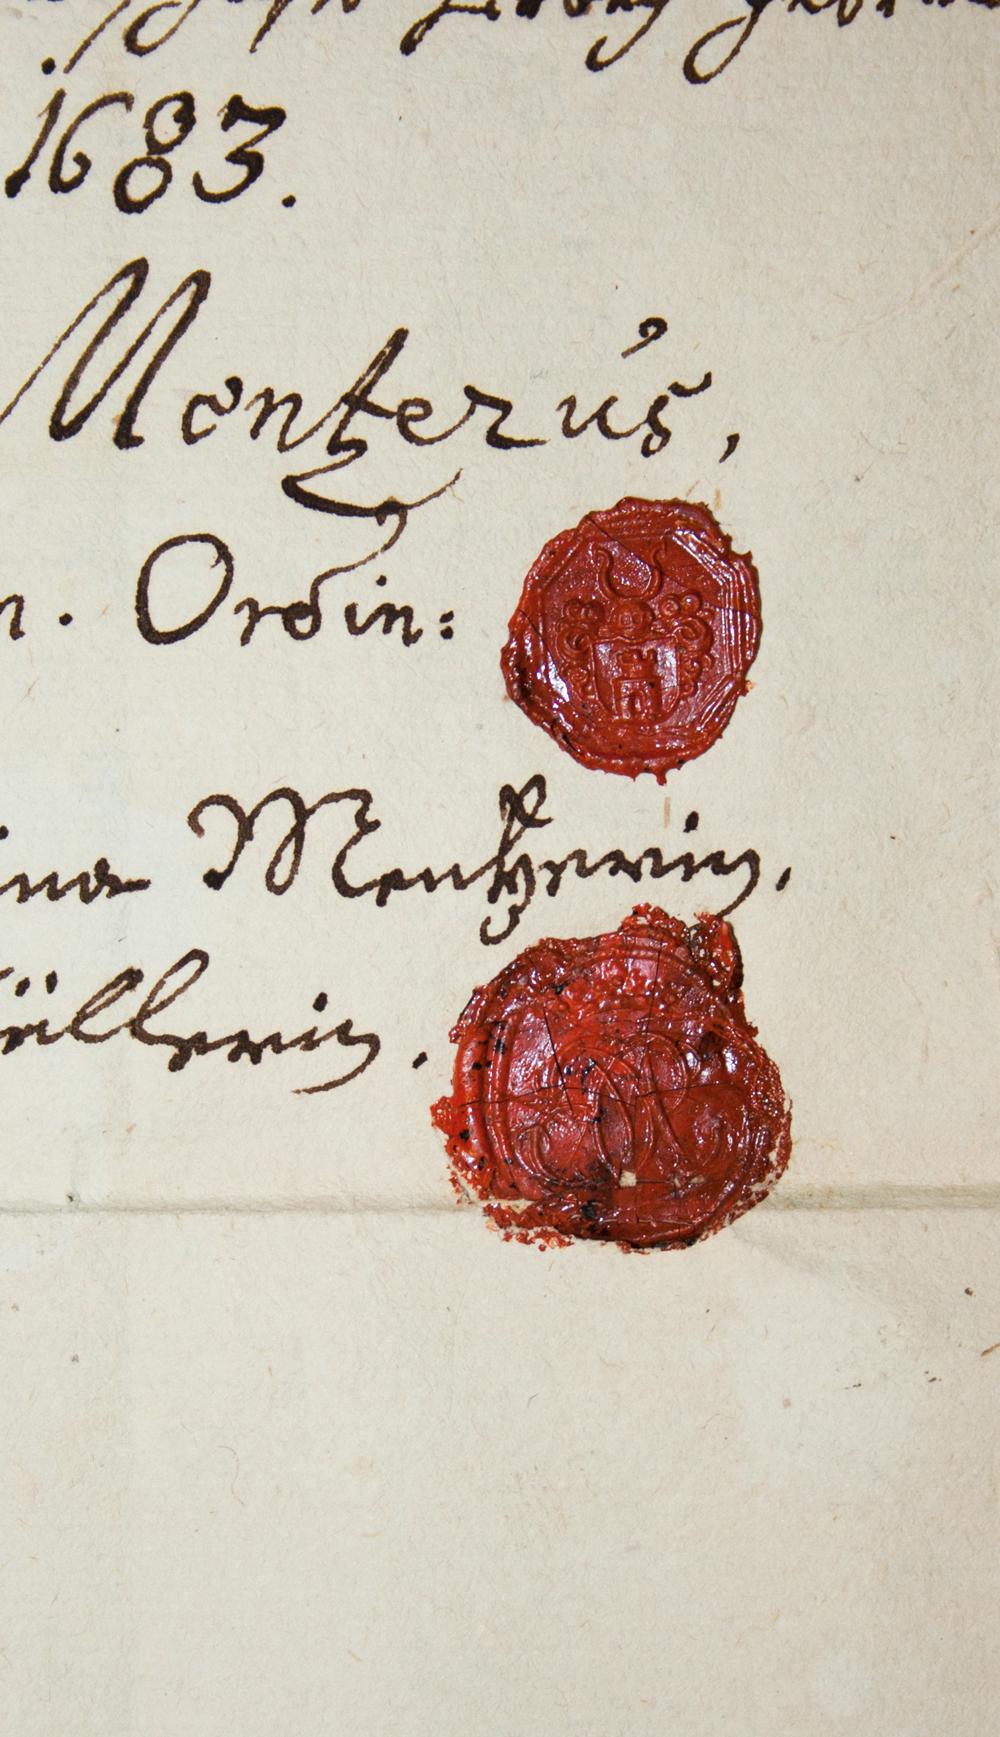 1683.
Mentzerus,
n. Ordin:
ina Mentzerin.
üllerin.